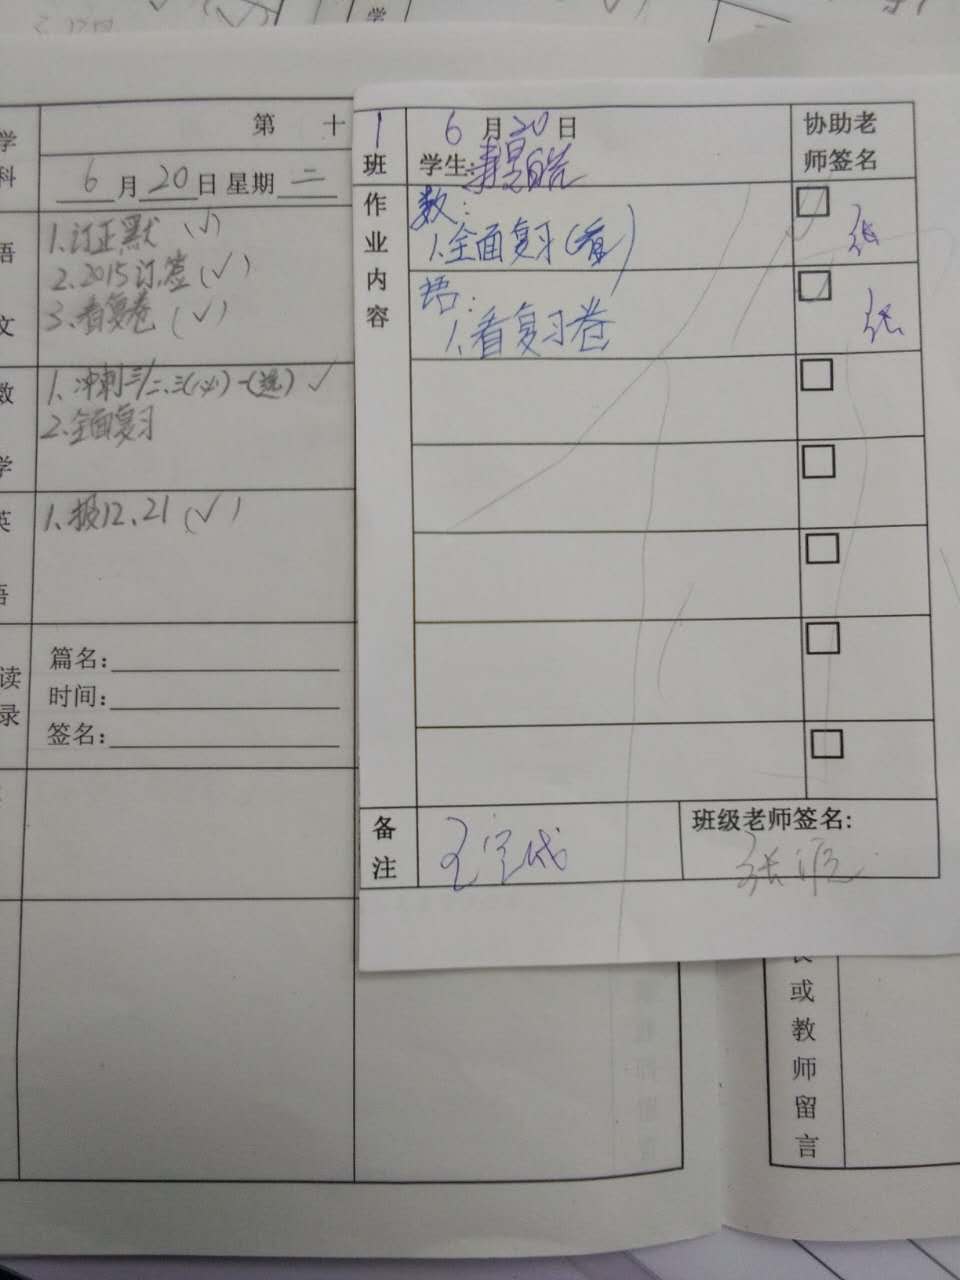 学
科
第 十
6月20日星期二
语
文
1.订正默 (√)
2.2015订.签(√)
3.看复卷 (√)
数
学
1.冲刺三/二.三(必)一(选) √
2.全面复习
英
语
1.报12、21 (√)
读
录
篇名:
时间:
签名:
1
班
6月20日
学生:
协助老
师签名
作
业
内
容
数:
1.全面复习(看)
张
语:
1.看复习卷
张
备
注
班级老师签名:
或
教
师
留
言